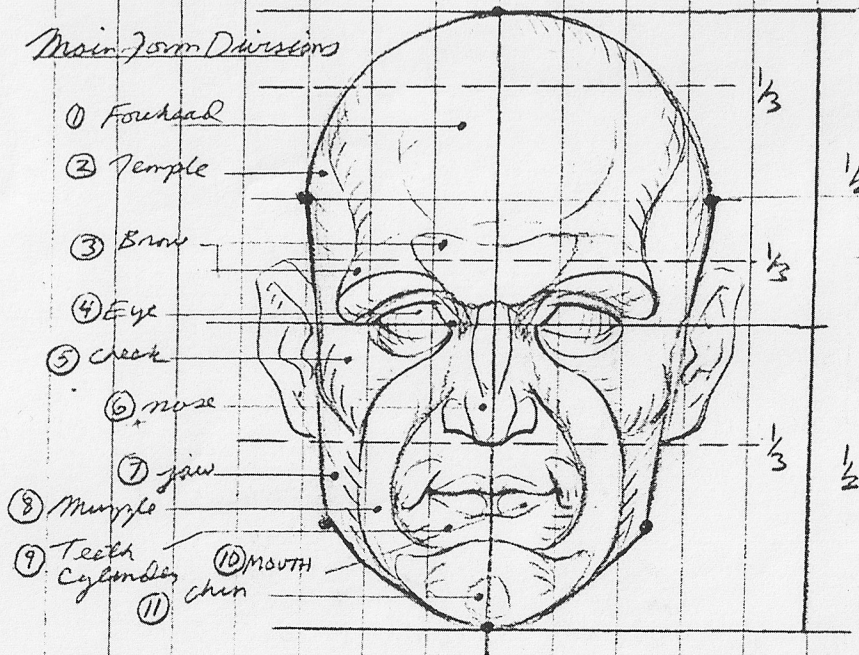 Main Form Divisions
① Forehead
② Temple
③ Brow
④ Eye
⑤ cheek
⑥ nose
⑦ jaw
⑧ Muzzle
⑨ Teeth
Cylinder
⑩ MOUTH
⑪ chin
1/3
1/3
1/3
1/2